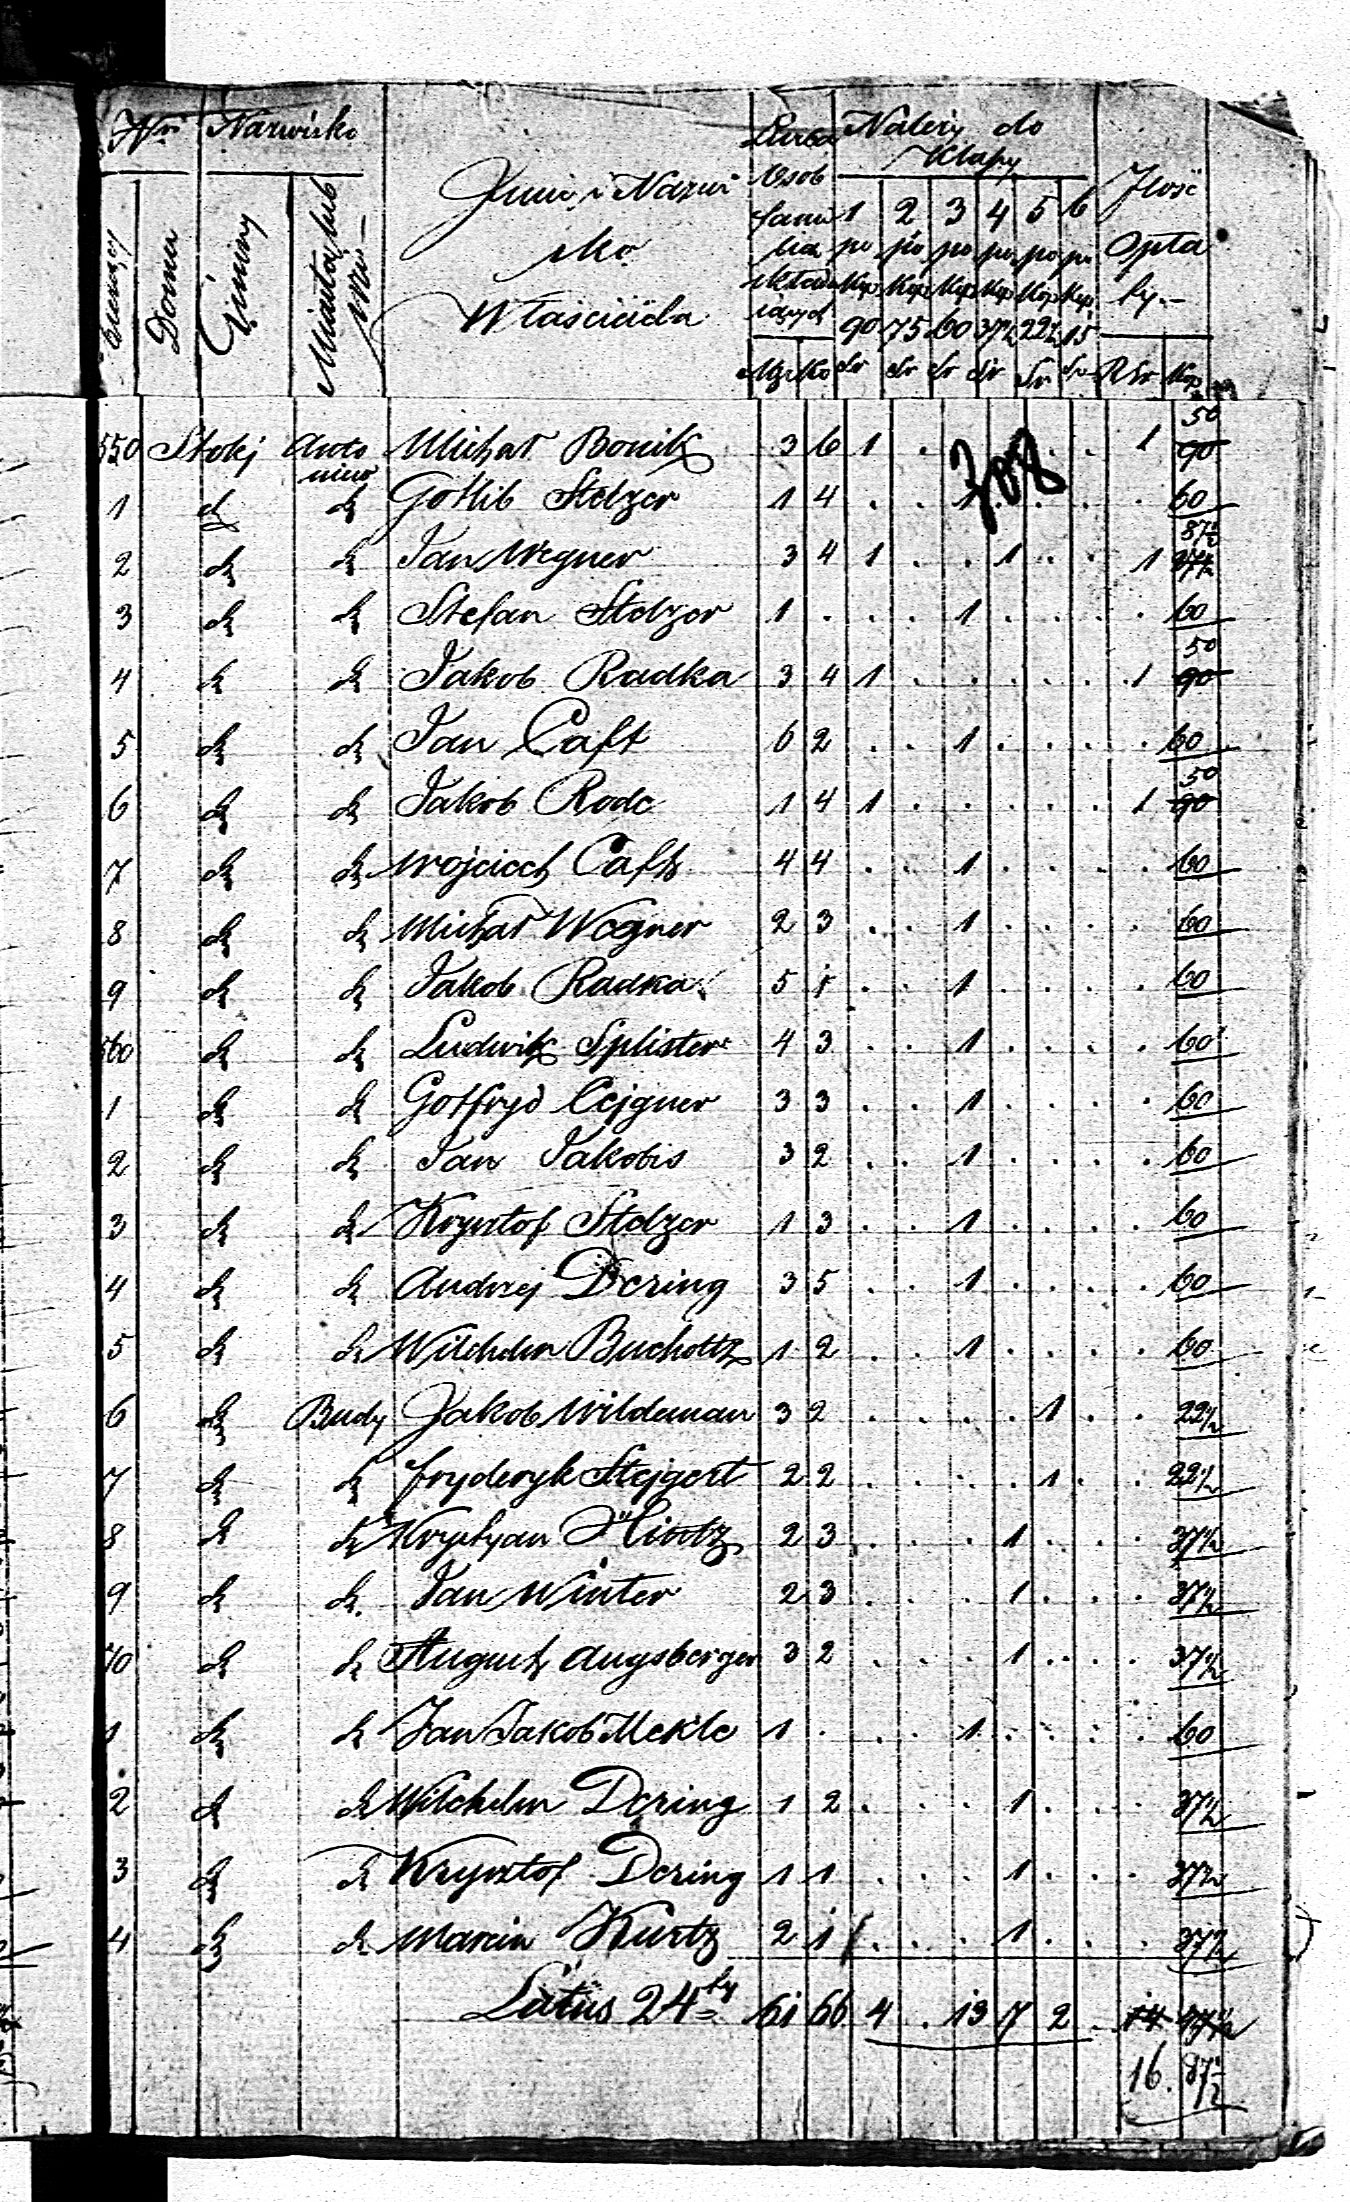 Nri Nazwisko Należy do Klasy
Bieżący Domu Gminy Miasta lub Wsi
Imie i Nazwi
sko
Właściciela
Liczba Osób familia składa iących
Męz Ko
1 2 3 4 5 6
po po po po po po
Kop Kop Kop Kop Kop Kop
90 75 60 37½ 22½ 15
Sr Sr Sr Sr Sr Sr
Ilość
Opła
ty.–
RSr Kop
308
50
550 Stoki Anto Michał Bonik 3 6 1 . . . . 1 90
nino
1 d d Gotlib Stelzer 1 4 . . 1 . . . . 60
87½
2 d d Jan Wegner 3 4 1 . . 1 . . 1 37½
3 d d Stefan Stelzer 1 . . . 1 . . . . 60
50
4 d d Jakob Radka 3 4 1 . . . . . 1 90
5 d d Jan Caft 6 2 . . 1 . . . . 60
50
6 d d Jakob Rode 1 4 1 . . . . . 1 90
7 d d Wojciech Caft 4 4 . . 1 . . . . 60
8 d d Michał Wegner 2 3 . . 1 . . . . 60
9 d d Jakob Radka 5 1 . . 1 . . . . 60
560 d d Ludwik Splister 4 3 . . 1 . . . . 60
1 d d Gotfryd Cejgner 3 3 . . 1 . . . . 60
2 d d Jan Jakobis 3 2 . . 1 . . . . 60
3 d d Krysztof Stelzer 1 3 . . 1 . . . . 60
4 d d Andrzej Dering 3 5 . . 1 . . . . 60
5 d d Wilchelm Bucholtz 1 2 . . 1 . . . . 60
6 d Budy Jakob Wildeman 3 2 . . . . 1 . . 22½
7 d d Fryderyk Stejgert 2 2 . . . . 1 . . 22½
8 d d Krystyan Hintz 2 3 . . . 1 . . . 37½
9 d d Jan Winter 2 3 . . . 1 . . . 37½
70 d d August Augsberger 3 2 . . . 1 . . . 37½
1 d d Jan Jakob Mekle 1 . . . 1 . . . . 60
2 d d Wilchelm Dering 1 2 . . . 1 . . . 37½
3 d d Krysztof Dering 1 1 . . . 1 . . . 37½
4 d d Marcin Kurtz 2 1 . . . 1 . . . 37½
Latus 24ty 61 66 4 . 13 7 2 . 14 47½
16. 87½